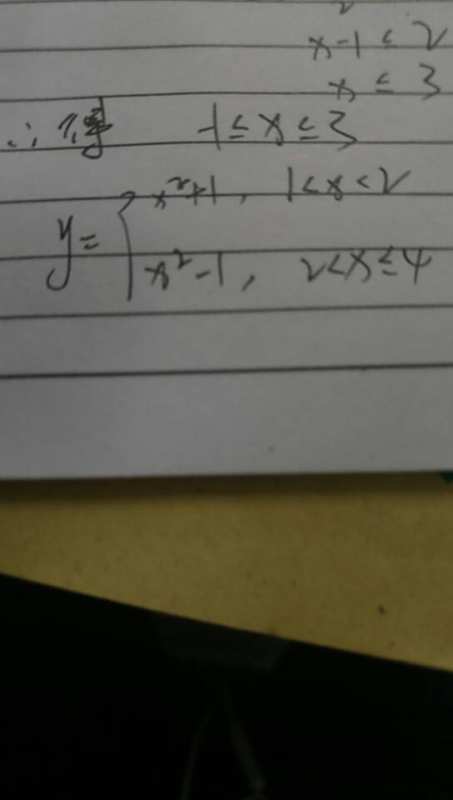 x-1 ≤ 2
x ≤ 3
∴ 得 -1 ≤ x ≤ 3
y = { x²+1, 1<x<2
x²-1, 2<x≤4